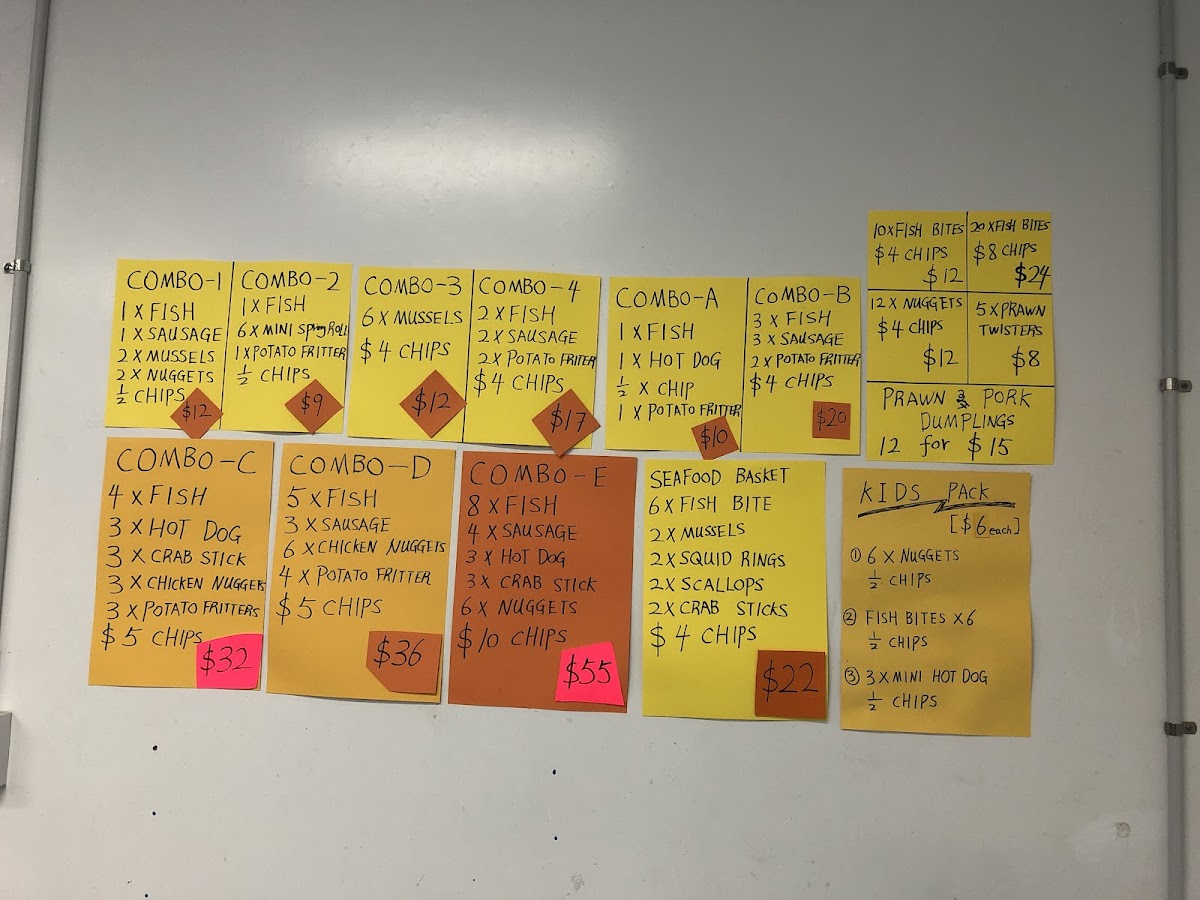 COMBO-1
1 X FISH
1 X SAUSAGE
2 X MUSSELS
2 X NUGGETS
½ CHIPS
$12
COMBO-2
1 X FISH
6 X MINI SPRING ROLL
1 X POTATO FRITTER
½ CHIPS
$9
COMBO-3
6 X MUSSELS
$4 CHIPS
$12
COMBO-4
2 X FISH
2 X SAUSAGE
2 X POTATO FRITTER
$4 CHIPS
$17
COMBO-A
1 X FISH
1 X HOT DOG
½ X CHIP
1 X POTATO FRITTER
$10
COMBO-B
3 X FISH
3 X SAUSAGE
2 X POTATO FRITTER
$4 CHIPS
$20
10 X FISH BITES
$4 CHIPS
$12
20 X FISH BITES
$8 CHIPS
$24
12 X NUGGETS
$4 CHIPS
$12
5 X PRAWN
TWISTERS
$8
PRAWN & PORK
DUMPLINGS
12 for $15
COMBO-C
4 X FISH
3 X HOT DOG
3 X CRAB STICK
3 X CHICKEN NUGGETS
3 X POTATO FRITTERS
$5 CHIPS
$32
COMBO-D
5 X FISH
3 X SAUSAGE
6 X CHICKEN NUGGETS
4 X POTATO FRITTER
$5 CHIPS
$36
COMBO-E
8 X FISH
4 X SAUSAGE
3 X HOT DOG
3 X CRAB STICK
6 X NUGGETS
$10 CHIPS
$55
SEAFOOD BASKET
6 X FISH BITE
2 X MUSSELS
2 X SQUID RINGS
2 X SCALLOPS
2 X CRAB STICKS
$4 CHIPS
$22
KIDS PACK
[$6 each]
① 6 X NUGGETS
½ CHIPS
② FISH BITES X 6
½ CHIPS
③ 3 X MINI HOT DOG
½ CHIPS